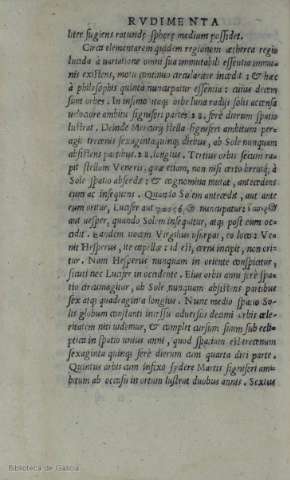 RVDIMENTA
litre fugiens rotundę spherę medium possidet.
Circa elementarem quidem regionem ætherea regio
lucida à variatione omni sua immutabili essentia immu-
nis existens, motu continuo circulariter incedit : & hæc
à philosophis quinta nuncupatur essentia : cuius decem
sunt orbes. In infimo itaq; orbe luna radijs solis accensa
velociore ambitu signiferi partes 28. ferè dierum spatio
lustrat. Deinde Mercurij stella signiferi ambitum per-
agit trecenis sexaginta quinq; diebus, ab Sole nunquam
absistens partibus 28. longius. Tertius orbis secum ra-
pit stellam Veneris, quæ etiam, non nisi certo breuiq; à
Sole spatio abscedit : & cognomina mutat , antecedens
eum ac insequens . Quando Solem antecedit , aut ante
eum oritur, Lucifer aut & nuncupatur :
aut vesper, quando Solem insequitur, atq; post eum oc-
cidit . Eandem vocem Virgilius vsurpat, eo loco: Ve-
nit Hesperus, ite capellæ : id est, cerni incipit , non ori-
tur . Nam Hesperus nunquam in oriente conspicitur,
sicuti nec Lucifer in occidente . Eius orbis anni ferè spa-
tio circumagitur, ab Sole nunquam absistens partibus
sex atq; quadraginta longius . Nunc medio spatio So-
lis globum constanti incessu aduersus decimi orbis cele-
ritatem niti videmus, & complet cursum suum sub ecli-
ptica in spatio vnius anni , quod spatium est trecentum
sexaginta quinq; ferè dierum cum quarta diei parte .
Quintus orbis cum infixo sydere Martis signiferi am-
bitum ab occasu in ortum lustrat duobus annis. Sextus
Biblioteca de Galicia